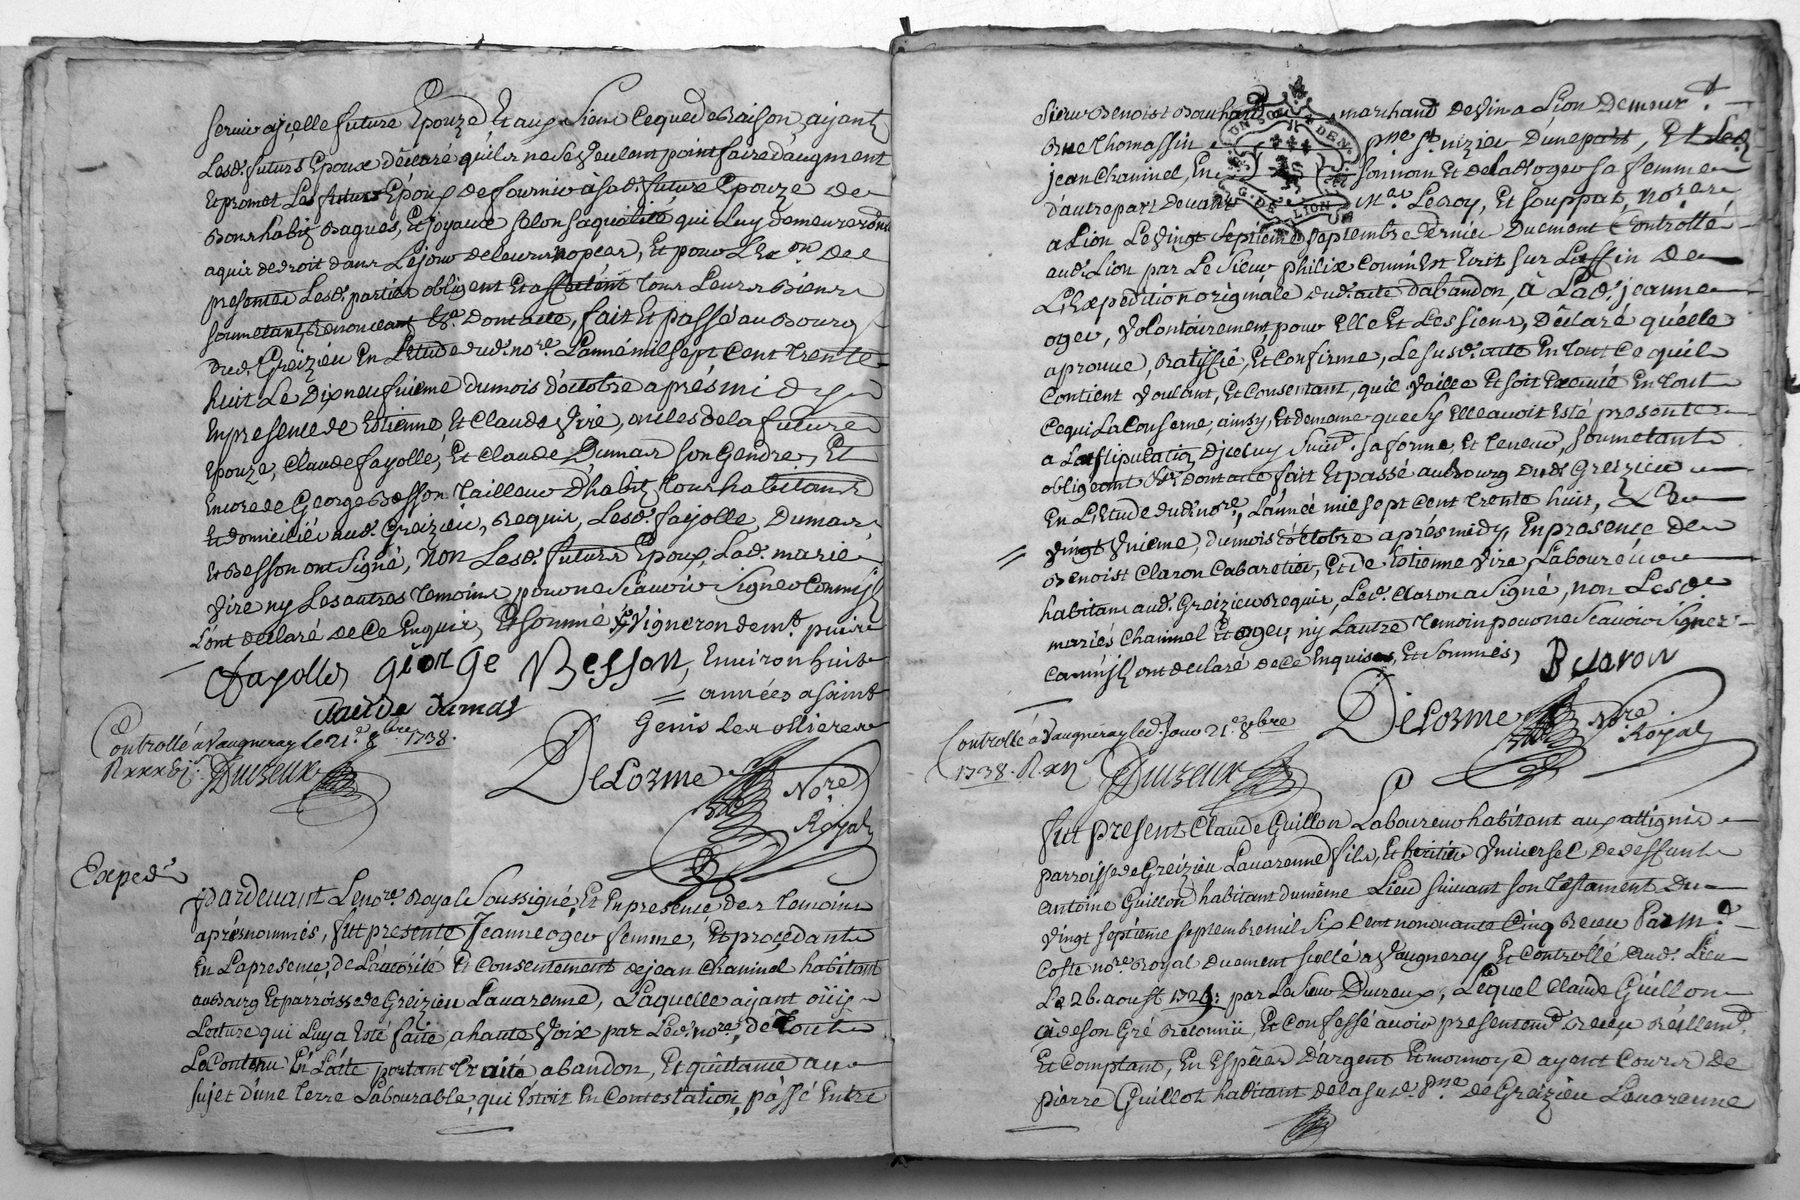 servir a jcelle future Epouze Et aux Siens ce que de Raison, ajant
Lesd. futurs Epoux déclaré qu'ils ne se veulent point faire d'augment
Et promet Led. futur Epoux de fournir à sad. future Epouze de
Bons habis Bagues, Et joyaux selon sa qualité qui Luy demeureront
aquis de droit dans Le jour de leurs nopces, Et pour L'Ex.on des
presentes Lesd. parties obligent Et affectent Tous Leurs Biens
soumetant, Renonceant &a. Dont acte, fait Et passé au Bourg
dud. Greizieu En L'etude dud. no.re L'année mil sept cent trente
huit Le Dix neufuieme du mois d'octobre aprés midy
En presence de Etienne Et Claude Vire, oncles de la future
Epouze, Claude fayolle, Et Claude Dumas son Gendre, Et
Encore de George Besson Tailleur D'habis Tous habitans
Et domiciliés aud. Greizieu, Requis, Lesd. fayolle, Dumas,
Et Besson ont signé, Non Lesd. futurs Epoux, Lad. marie
Vire ny Les autres Temoins pour ne scauoir signer Comme jls
L'ont declaré de ce Enquis, Et sommé Vigneron dem.t puis
fayolle, george Besson, Enuiron huit
années a saint
Claude dumas
Genis Les ollieres
Controllé a Vaugneray le 21.e 8bre 1738.
Ducreux
Delorme No.re
Royal
Exped.
Pardeuant Le no.re Royal Soussigné, Et En presence des temoins
aprés nommés, fut presente Jeanne oger femme, Et procedant
En La presence, de L'autorité Et Consentement de jean Chaninel habitant
au Bourg Et parroisse de Greizieu Lauarenne, Laquelle ajant oüy
Lecture qui Luy a Eté faite, a haute Voix par Led. no.re, de Tout
Le Contenu En L'acte portant traité abandon, Et quittance au
sujet d'une Terre Labourable, qui Etoit En Contestation, passé Entre
Sieur Benoist Bouchard marchand de Vin a Lion demeur.t
Rue Thomassin p.sse St. nizier d'une part, Et Led.
jean Chaninel, En son nom Et de lad. oger sa femme
d'autre part Deuant M.es Leroy, Et souppat, No.res
a Lion Le Vingt septieme septembre dernier Duement Controllé
aud. Lion par Le Sieur philix comm'Est Ecrit sur La fin de
L'Expedition originale dud. acte d'abandon, à Lad. jeanne
oger, Volontairement pour Elle Et Les siens, Déclaré qu'elle
aprouue, Ratiffie, Et Confirme, Le susd. acte En tout ce qu'il
Contient Voulant, Et Consentant, qu'il Vaille Et soit Executé En tout
Ce qui La Conserne, ainsy, Et de meme que sy Elle auoit Esté presente
a La stipulation D'jceluy suiv.t sa forme, Et teneur, soumetant
obligeant &a. Dont acte fait Et passé au Bourg dud. Greizieu
En L'Etude dud. no.re, L'année mil sept cent trente huit, Le
Vingt Vnieme, du mois d'octobre aprés midy, En presence de
Benoist Claron Cabaretier, Et de Etienne Vire Laboureur
habitans aud. Greizieu Requis, Led. Claron a signé, non Lesd.
mariés Chaninel Et oger, ny L'autre Temoin pour ne scauoir signer
Comm'jls ont declaré de ce Enquis, Et sommés,
B Claron
Delorme No.re
Royal
Controllé a Vaugneray led. Jour 21.e 8bre
1738.
Ducreux
fut present Claude Guillon Laboureur habitant aux attignies
parroisse de Greizieu Lauarenne fils, Et heritier Vniuersel de deffunt
antoine Guillon habitant du même Lieu suivant son Testament du
Vingt septieme septembre mil six cent nonante Cinq Receu Par M.e
Coste no.re Royal duement scellé a Vaugneray Et Controllé aud. Lieu
Le 26. aoust par Le Sieur Ducreux, Lequel Claude Guillon
a de son Gré Reconnü, Et Confessé auoir presentem.t Receu Réellem.t
Et Comptant, En Especes D'argent Et monnoye ayant Cours de
pierre Guillot habitant de la susd. P.sse de Greizieu Lauarenne